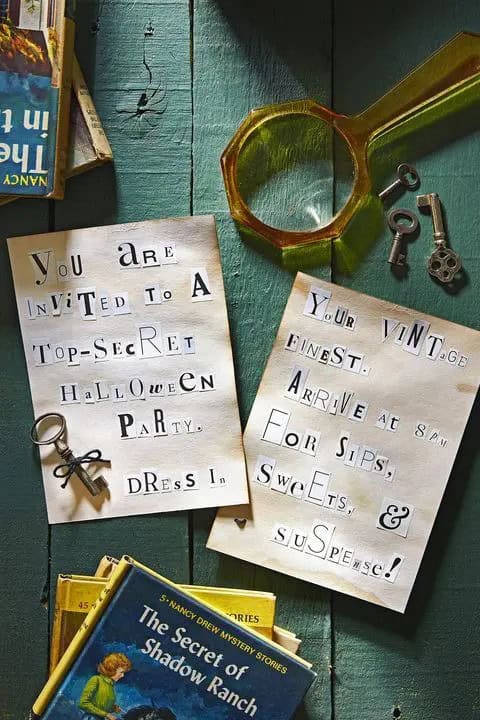 The
in t
NANCY
YOU ARE
INVITED TO A
TOP-SECRET
HALLOWEEN
PARTY.
DRESS IN
YOUR VINTAGE
FINEST.
ARRIVE AT 8PM
FOR SIPS,
SWEETS, &
SUSPENSE!
45
TORIES
5 • NANCY DREW MYSTERY STORIES
The Secret of
Shadow Ranch